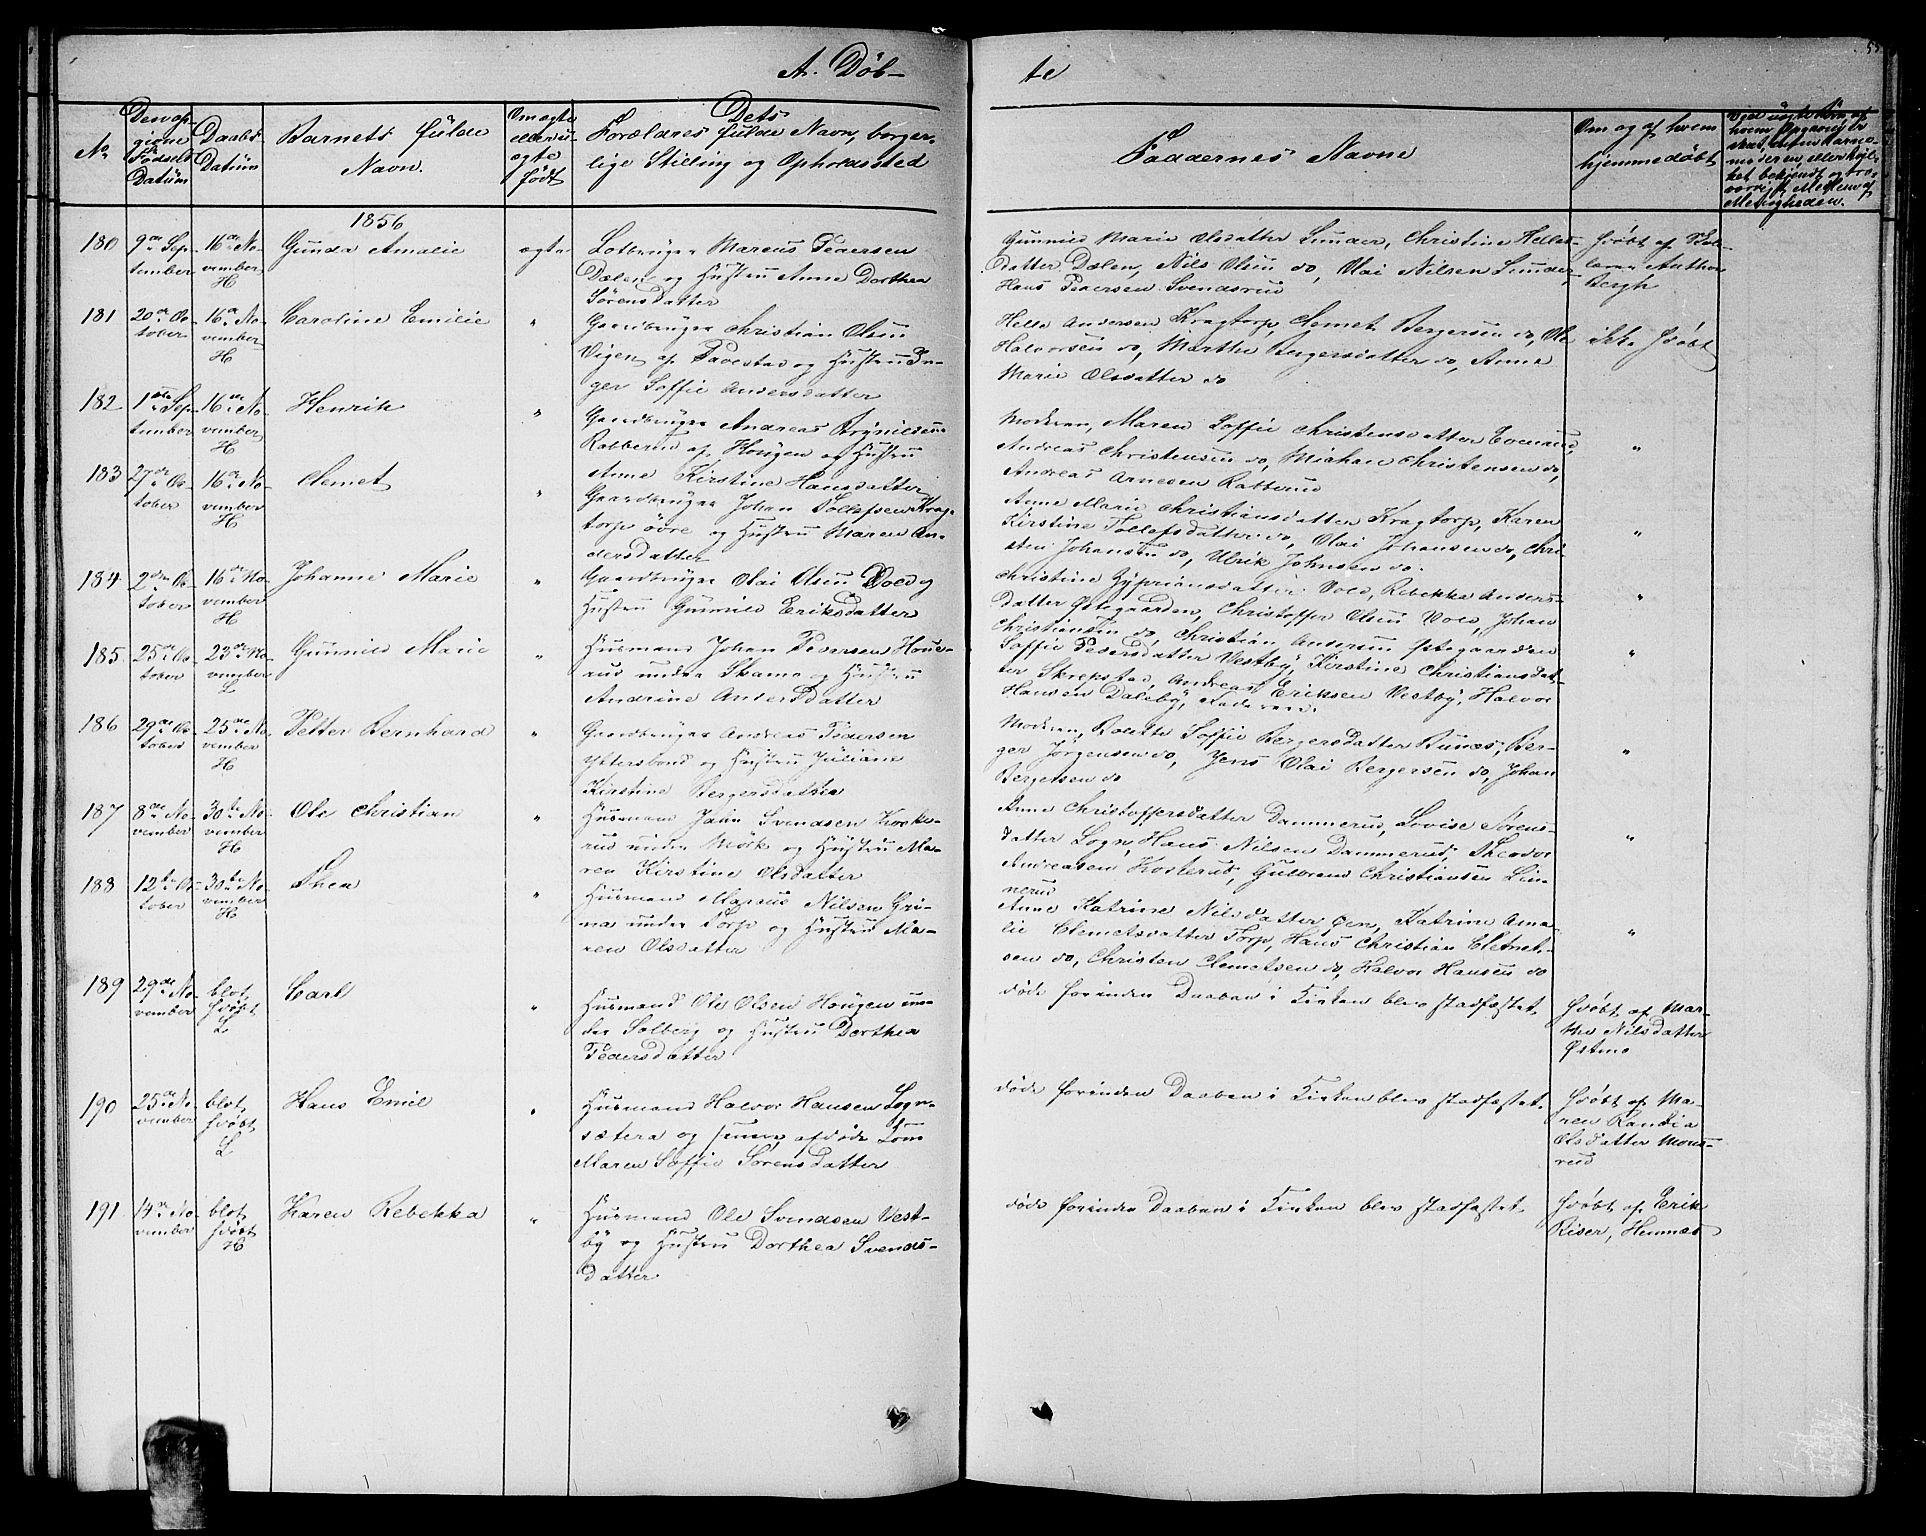 A. Döb-
te
No
Den op-
givne
Födsels
Datüm
Daabs
Datüm
Barnets fülde
Navn.
Om ægte
eller u-
ægte
födt
Dets
Forældres fulde Navn, borger-
lige Stilling og Opholdssted
Faddernes Navne
Om og af hvem
hjemmedöbt
1856
180
9de Sep-
tember
16de No-
vember
H
Gunda Amalie
ægte
Lodbruger Marcus Pedersen
Dælen og Hustru Anne Dorthea
Sörensdatter
Gunnild Marie Olsdatter Sunder, Christine Helles-
datter Dælen, Nils Olsen do, Olai Nilsen Sunder,
Hans Pedersen Svendsrud
hdöbt af Sko-
lærer Anthon
Bergh
181
20de Oc-
tober
16de No-
vember
H
Caroline Emilie
"
Gaardbruger Christian Olsen
Vigen af Tavestad og Hustru In-
ger Soffie Andersdatter
Helle Andersen Kragtorp, Clemet Bergersen do, Ole
Halvorsen do, Marthe Bergersdatter do, Anne
Marie Olsdatter do
ikke hdöbt
182
1ste Sep-
tember
16de No-
vember
H
Henrik
"
Gaardbruger Andreas Brynildsen
Ratterud af Hougen og Hustru
Anne Kirstine Hansdatter
Moderen, Maren Soffie Christensdatter Evenrud,
Andreas Christensen do, Michael Christensen do,
Andreas Arnesen Ratterud
"
183
27de Oc-
tober
16de No-
vember
H
Clemet
"
Gaardbruger Johan Tollefsen Krag-
torp övre og Hustru Maren An-
dersdatter
Anne Marie Christiansdatter Kragtorp, Karen
Kirstine Tollefsdatter do, Olai Johansen do, Chri-
sten Johansen do, Ulrik Johnsen do.
"
184
2den Oc-
tober
16de No-
vember
H
Johanne Marie
"
Gaardbruger Olai Olsen Vold og
Hustru Gunnild Eriksdatter
Christine Gypriansdatter Vold, Rebekka Anders-
datter Östegaarden, Christoffer Olsen Vold, Johan
Christiansen do, Christian Andersen Östegaarden
"
185
25de Oc-
tober
23de No-
vember
L
Gunnild Marie
"
Husmand Johan Pedersen Houe-
rud under Skamo og Hustru
Andrine Andersdatter
Soffie Pedersdatter Vestby, Kirstine Christiansdat-
ter Skrepstad, Andreas Eriksen Vestby, Halvor
Hansen Daleby, Faderen.
"
186
29de Oc-
tober
25de No-
vember
H
Petter Bernhard
"
Gaardbruger Andreas Pedersen
Yttersbond og Hustru Juliane
Kirstine Bergersdatter
Moderen, Rolette Soffie Bergersdatter Bunæs, Ber-
ger Jörgensen do, Jens Olai Bergersen do, Johan
Bergersen do
"
187
8de No-
vember
30te No-
vember
H
Ole Christian
"
Husmand Jahn Svendsen Kokke-
rud under Mörk og Hustru Ma-
ren Kirstine Olsdatter
Anne Christoffersdatter Dammerud, Lovise Sörens-
datter Sogn, Hans Nilsen Dammerud, Theodor
Andreasen Kosterud, Gulbrand Christiansen Lin-
nerud
"
188
12te Oc-
tober
30te No-
vember
H
Thea
"
Husmand Marcus Nilsen Gri-
na under Torp og Hustru Ma-
ren Olsdatter
Anne Katrine Nilsdatter Öen, Katrine Ama-
lie Clemetsdatter Torp, Hans Christian Clemet-
sen do, Christen Clemetsen do, Halvor Hansen do
"
189
29de No-
vember
blot
hdöbt
L
Carl
"
Husmand Ole Olsen Hougen un-
der Solberg og Hustru Dorthea
Pedersdatter
döde forinden Daaben i Kirken blev stadfæstet.
hdöbt af Mar-
the Nilsdatter
Östmo
190
25de No-
vember
blot
hdöbt
L
Hans Emil
"
Husmand Halvor Hansen Sogn-
sætera og hans afdöde Kone
Maren Soffie Sörensdatter
döde forinden Daaben i Kirken blev stadfæstet.
hdöbt af Ma-
ren Randia
Olsdatter Mons-
rud
191
14de No-
vember
blot
hdöbt
H
Karen Rebekka
"
Husmand Ole Svendsen Vest-
by og Hustru Dorthea Svends-
datter
döde forinden Daaben i Kirken blev stadfæstet
hdöbt af Erik
Riser, Hemnæs